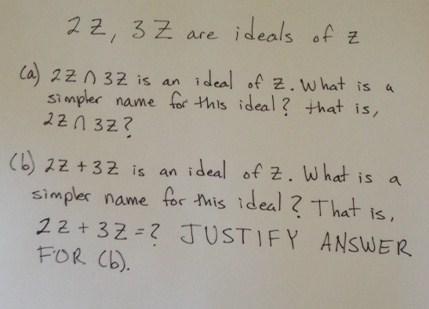 2Z, 3Z are ideals of Z
(a) 2Z ∩ 3Z is an ideal of Z. What is a
simpler name for this ideal? that is,
2Z ∩ 3Z?
(b) 2Z + 3Z is an ideal of Z. What is a
simpler name for this ideal? That is,
2Z + 3Z = ? JUSTIFY ANSWER
FOR (b).